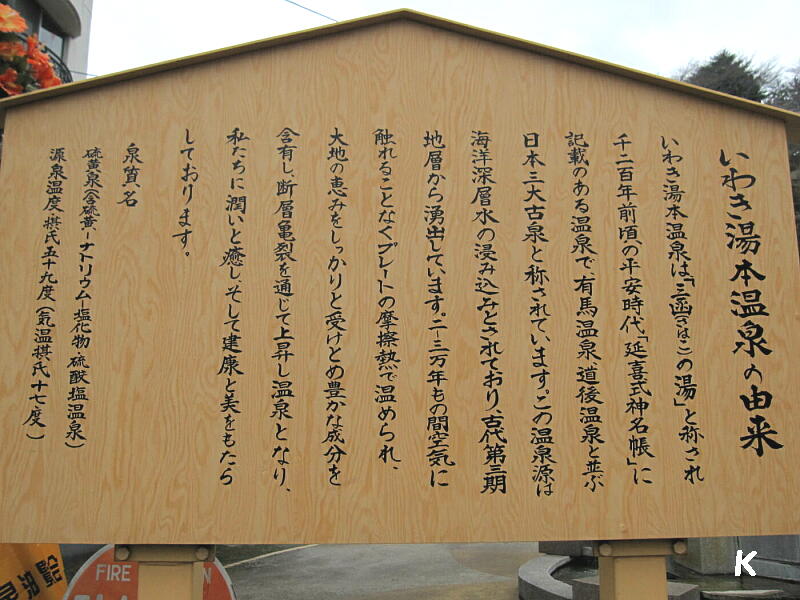 いわき湯本温泉の由来
いわき湯本温泉は、「三函(さはこ)の湯」と称され
千二百年前頃の平安時代「延喜式神名帳」に
記載のある温泉で、有馬温泉、道後温泉と並ぶ
日本三大古泉と称されています。この温泉源は
海洋深層水の浸み込みとされており、古代第三期
地層から湧出しています。二〜三万年もの間空気に
触れることなくプレートの摩擦熱で温められ、
大地の恵みをしっかりと受けとめ豊かな成分を
含有し、断層亀裂を通じて上昇し温泉となり、
私たちに潤いと癒し、そして健康と美をもたら
しております。
泉質名
硫黄泉(含硫黄−ナトリウム−塩化物・硫酸塩温泉)
源泉温度・摂氏五十九度(気温摂氏十七度)
FIRE
K